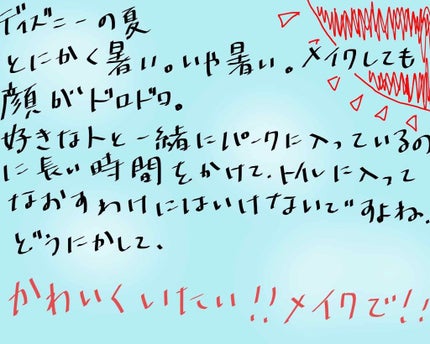 ディズニーの夏
とにかく暑い。いや暑い。メイクしても
顔がドロドロ。
好きな人と一緒にパークに入っているの
に長い時間をかけて、トイレに入って
なおすわけにはいけないですよね。
どうにかして、
かわいくいたい!!メイクで!!